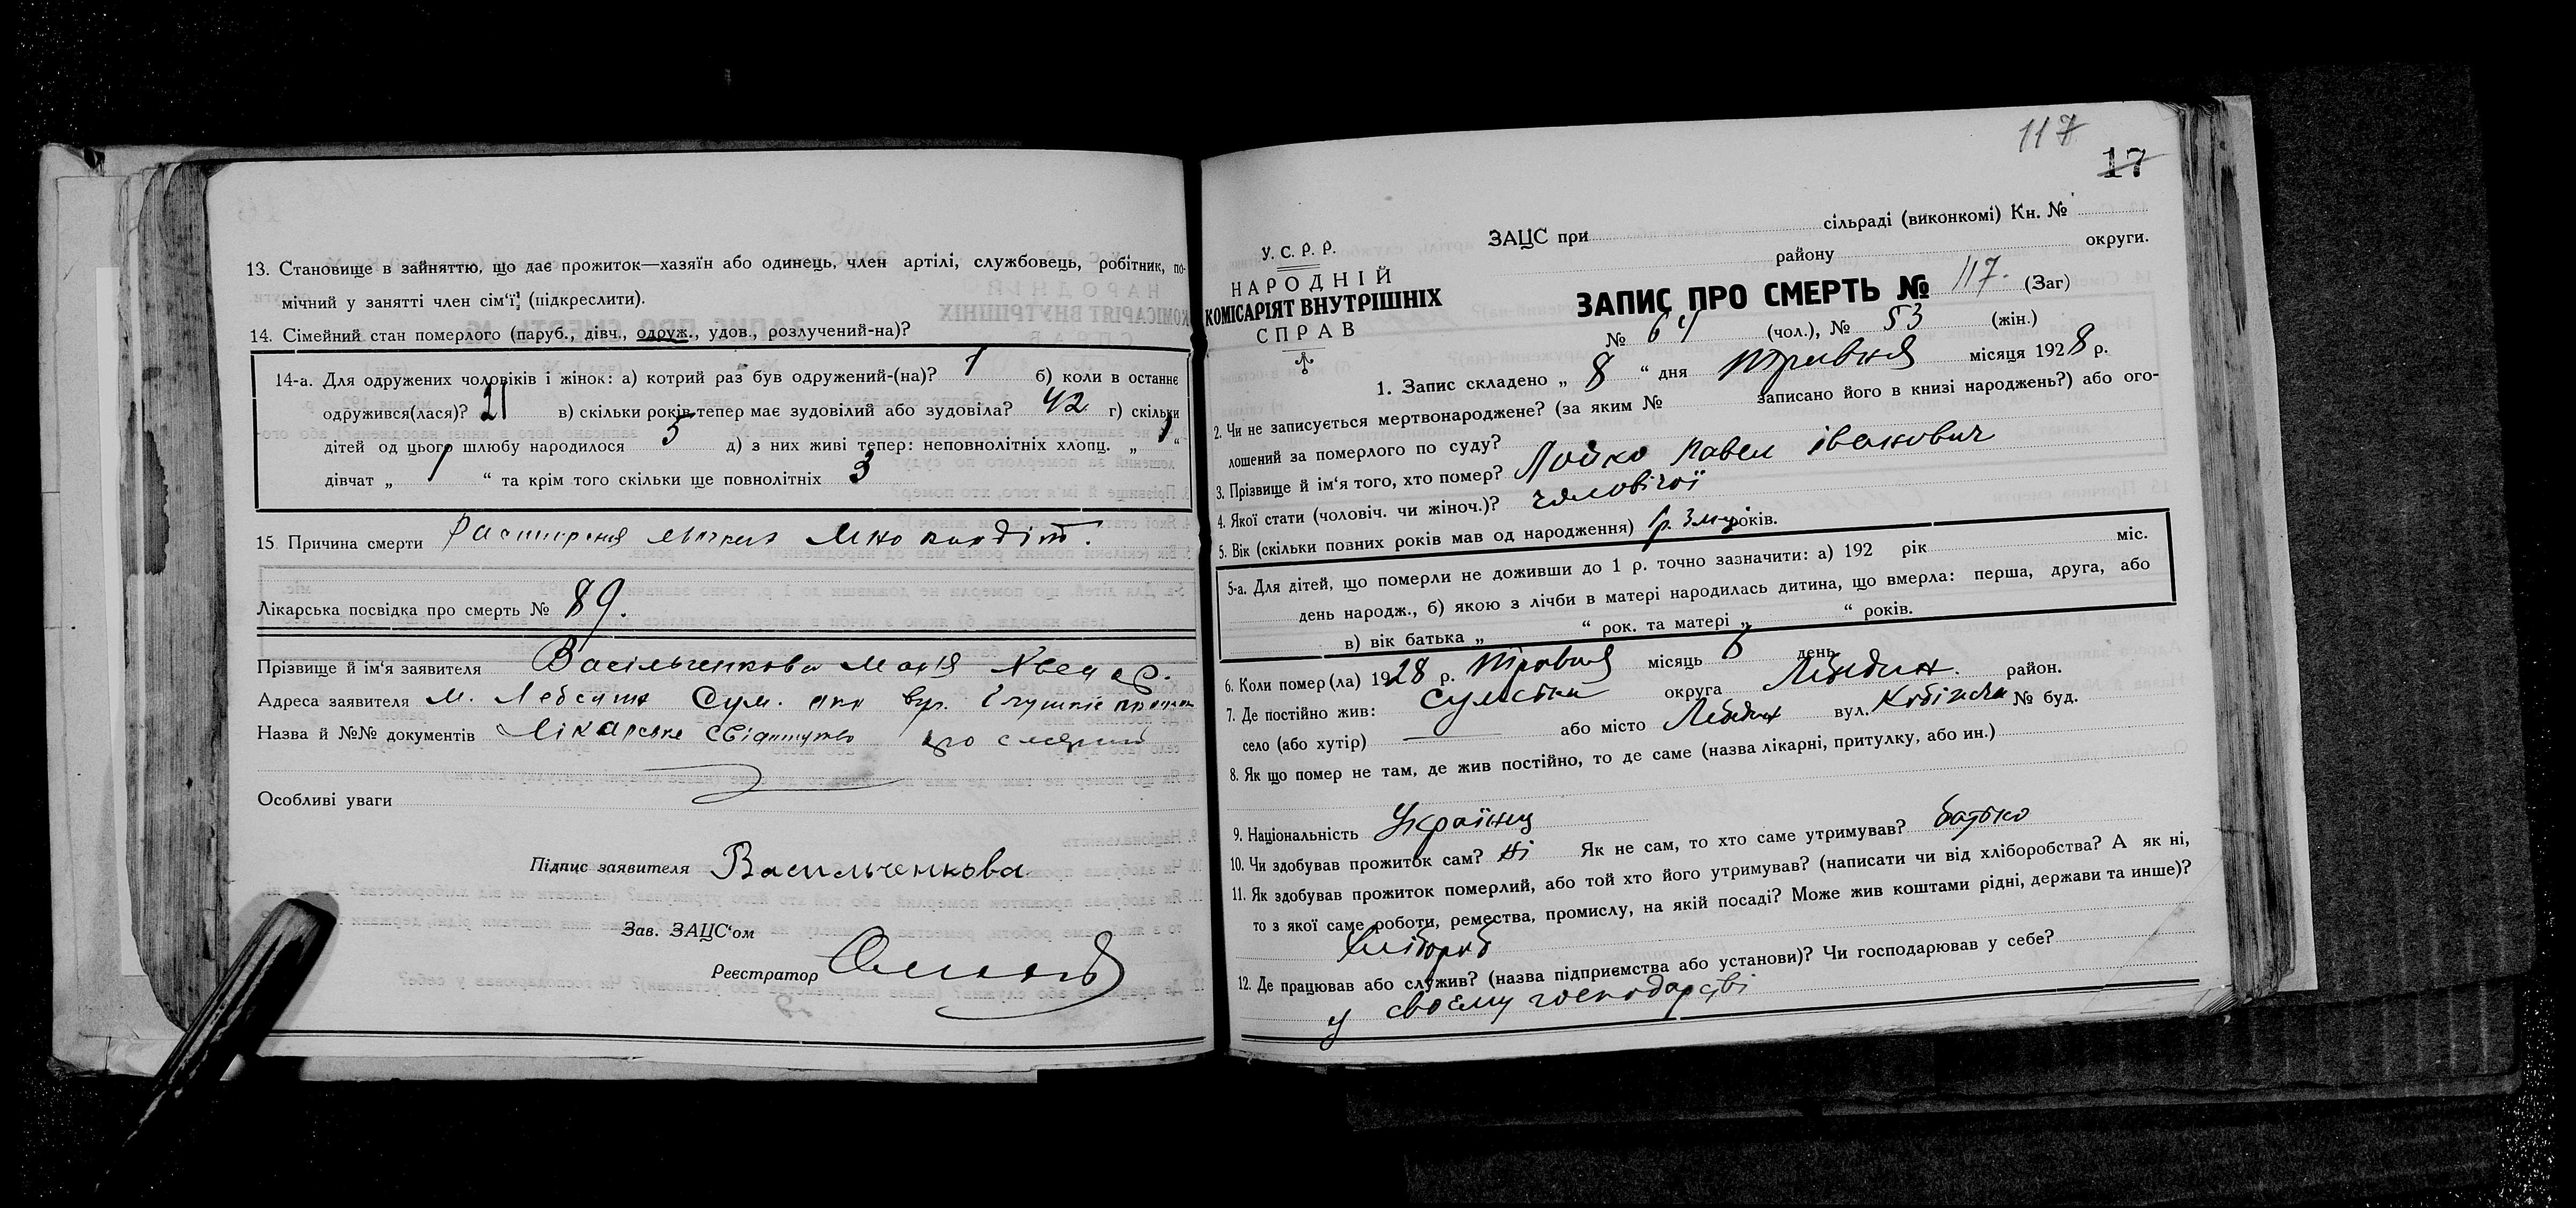 13. Становище в зайняттю, що дає прожиток—хазяїн або одинець, член артілі, службовець, робітник, по-
мічний у занятті член сім‘ї; (підкреслити).
14. Сімейний стан померлого (паруб., дівч., одруж., удов., розлучений-на)?
14-а. Для одружених чоловіків і жінок: а) котрий раз був одружений-(на)? 1 б) коли в останнє
одружився(лася)? 21 в) скільки років тепер має зудовілий або зудовіла? 42 г) скільки
дітей од цього шлюбу народилося 5 д) з них живі тепер: неповнолітніх хлопц. „ 1 “
дівчат „ 1 “ та крім того скільки ще повнолітніх 3
15. Причина смерти
Лікарська посвідка про смерть № 89.
Прізвище й ім‘я заявителя Васільченкова Марія
Адреса заявителя м. Лебедин Сум. окр вул.
Назва й №№ документів Лікарске свідоцтво про смерть
Особливі уваги
Підпис заявителя Васильченкова
Зав. ЗАЦС‘ом
Реєстратор
117
17
У. С. Р. Р.
НАРОДНІЙ
КОМІСАРІЯТ ВНУТРІШНІХ
СПРАВ
ЗАЦС при сільраді (виконкомі) Кн. №
району округи.
ЗАПИС ПРО СМЕРТЬ № 117. (Заг)
№ 64 (чол.), № 53 (жін.)
1. Запис складено „ 8 “ дня травня місяця 1928 р.
2. Чи не записується мертвонароджене? (за яким № записано його в книзі народжень?) або ого-
лошений за померлого по суду?
3. Прізвище й ім‘я того, хто помер? Лойко Павел Іванович
4. Якої стати (чоловіч. чи жіноч.)? чоловічої
5. Вік (скільки повних років мав од народження) 1 р. 3 міс років.
5-а. Для дітей, що померли не доживши до 1 р. точно зазначити: а) 192 рік міс.
день народж., б) якою з лічби в матері народилась дитина, що вмерла: перша, друга, або
в) вік батька „ “ рок. та матері „ “ років.
6. Коли помер(ла) 1928 р. травня місяць 6 день
7. Де постійно жив: Сумська округа Лебедин. район.
село (або хутір) або місто Лебедин вул. № буд.
8. Як що помер не там, де жив постійно, то де саме (назва лікарні, притулку, або ин.)
9. Національність Українец
10. Чи здобував прожиток сам? Ні Як не сам, то хто саме утримував? батько
11. Як здобував прожиток померлий, або той хто його утримував? (написати чи від хліборобства? А як ні,
то з якої саме роботи, ремества, промислу, на якій посаді? Може жив коштами рідні, держави та инше)?
хлібороб
12. Де працював або служив? (назва підприємства або установи)? Чи господарював у себе?
у своєму господарстві